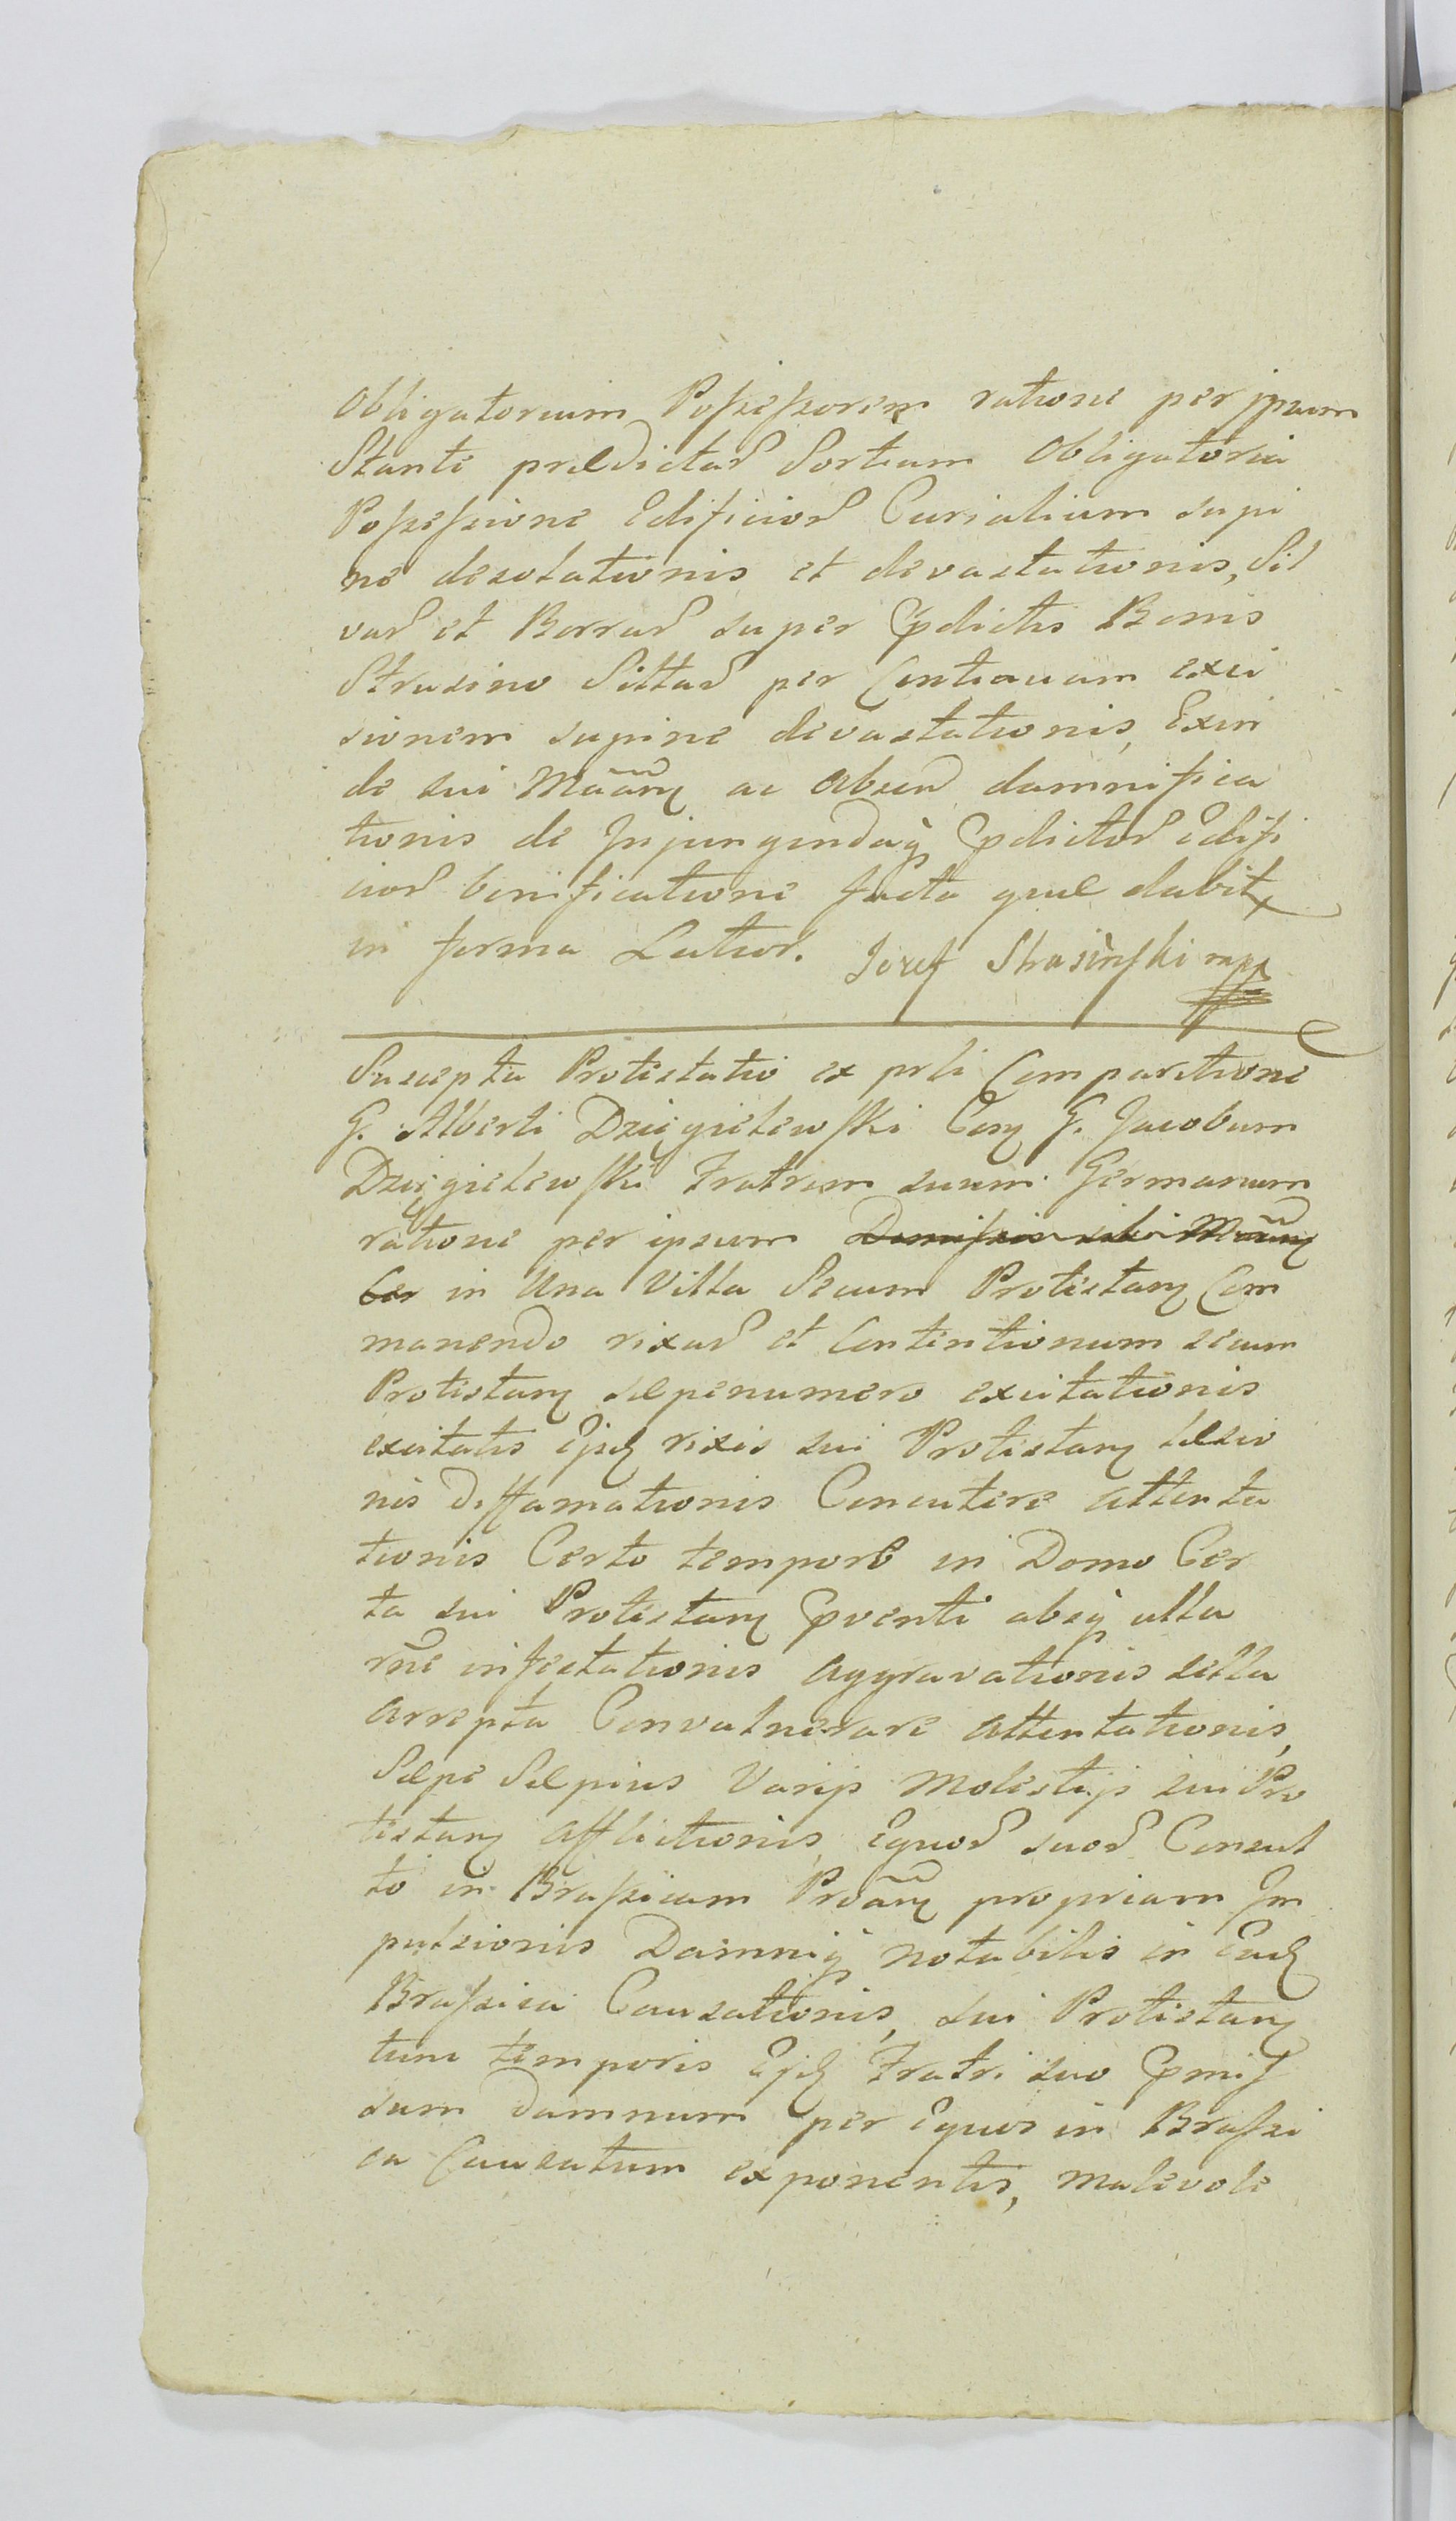 Obligatorium Poſseſsorem ratione per ipsum
Stante prædictar Sortium Obligatoria
Poſseſsione Edificior Curialium supi
ne desolationis et devastationis, Sil
var et Borrar super Pdictis Bonis
Strusino Sittar per Continuam exci
sionem supine devastationis, Exin
de sui Mããnţ ac Absen damnifica
tionis de Injungendaq Pdictor Edifi
cior bonificatione facta quæ dabit
in forma Latior. Jozef Strasiński mpp
Suscepta Protestatio ex prli Comparitione
G. Alberti Dzięgielewſki Con G. Jacobum
Dzięgielewſki Fratrem suum Germanum
ratione per ipsum
in Una Villa Secum Protestan Com
manendo rixar et Contentionum secum
Protestan sæpenumero excitationis
excitatis Ejusd rixis sui Protestan læsio
nis Diffamationis Concutere attenta
tionis Certo tempore in Domo Cer
ta sui Protestan Pventi absq ulla
rñe infestationis aggravationis sella
arrepta Convulnerare attentationis,
Sæpe Sæpius Varijs Molestijs sui Pro
testan afflictionis, Equor suor Consul
to in Braſsicam Proãn propriam Im
pulsionis Damniq notabilis in Ead
Braſsica Causationis, sui Protestan
tunc temporis Ejd Fratri suo Pmiſ
sum Damnum per Equos in Braſsi
ca Causatum exponentis, malevole